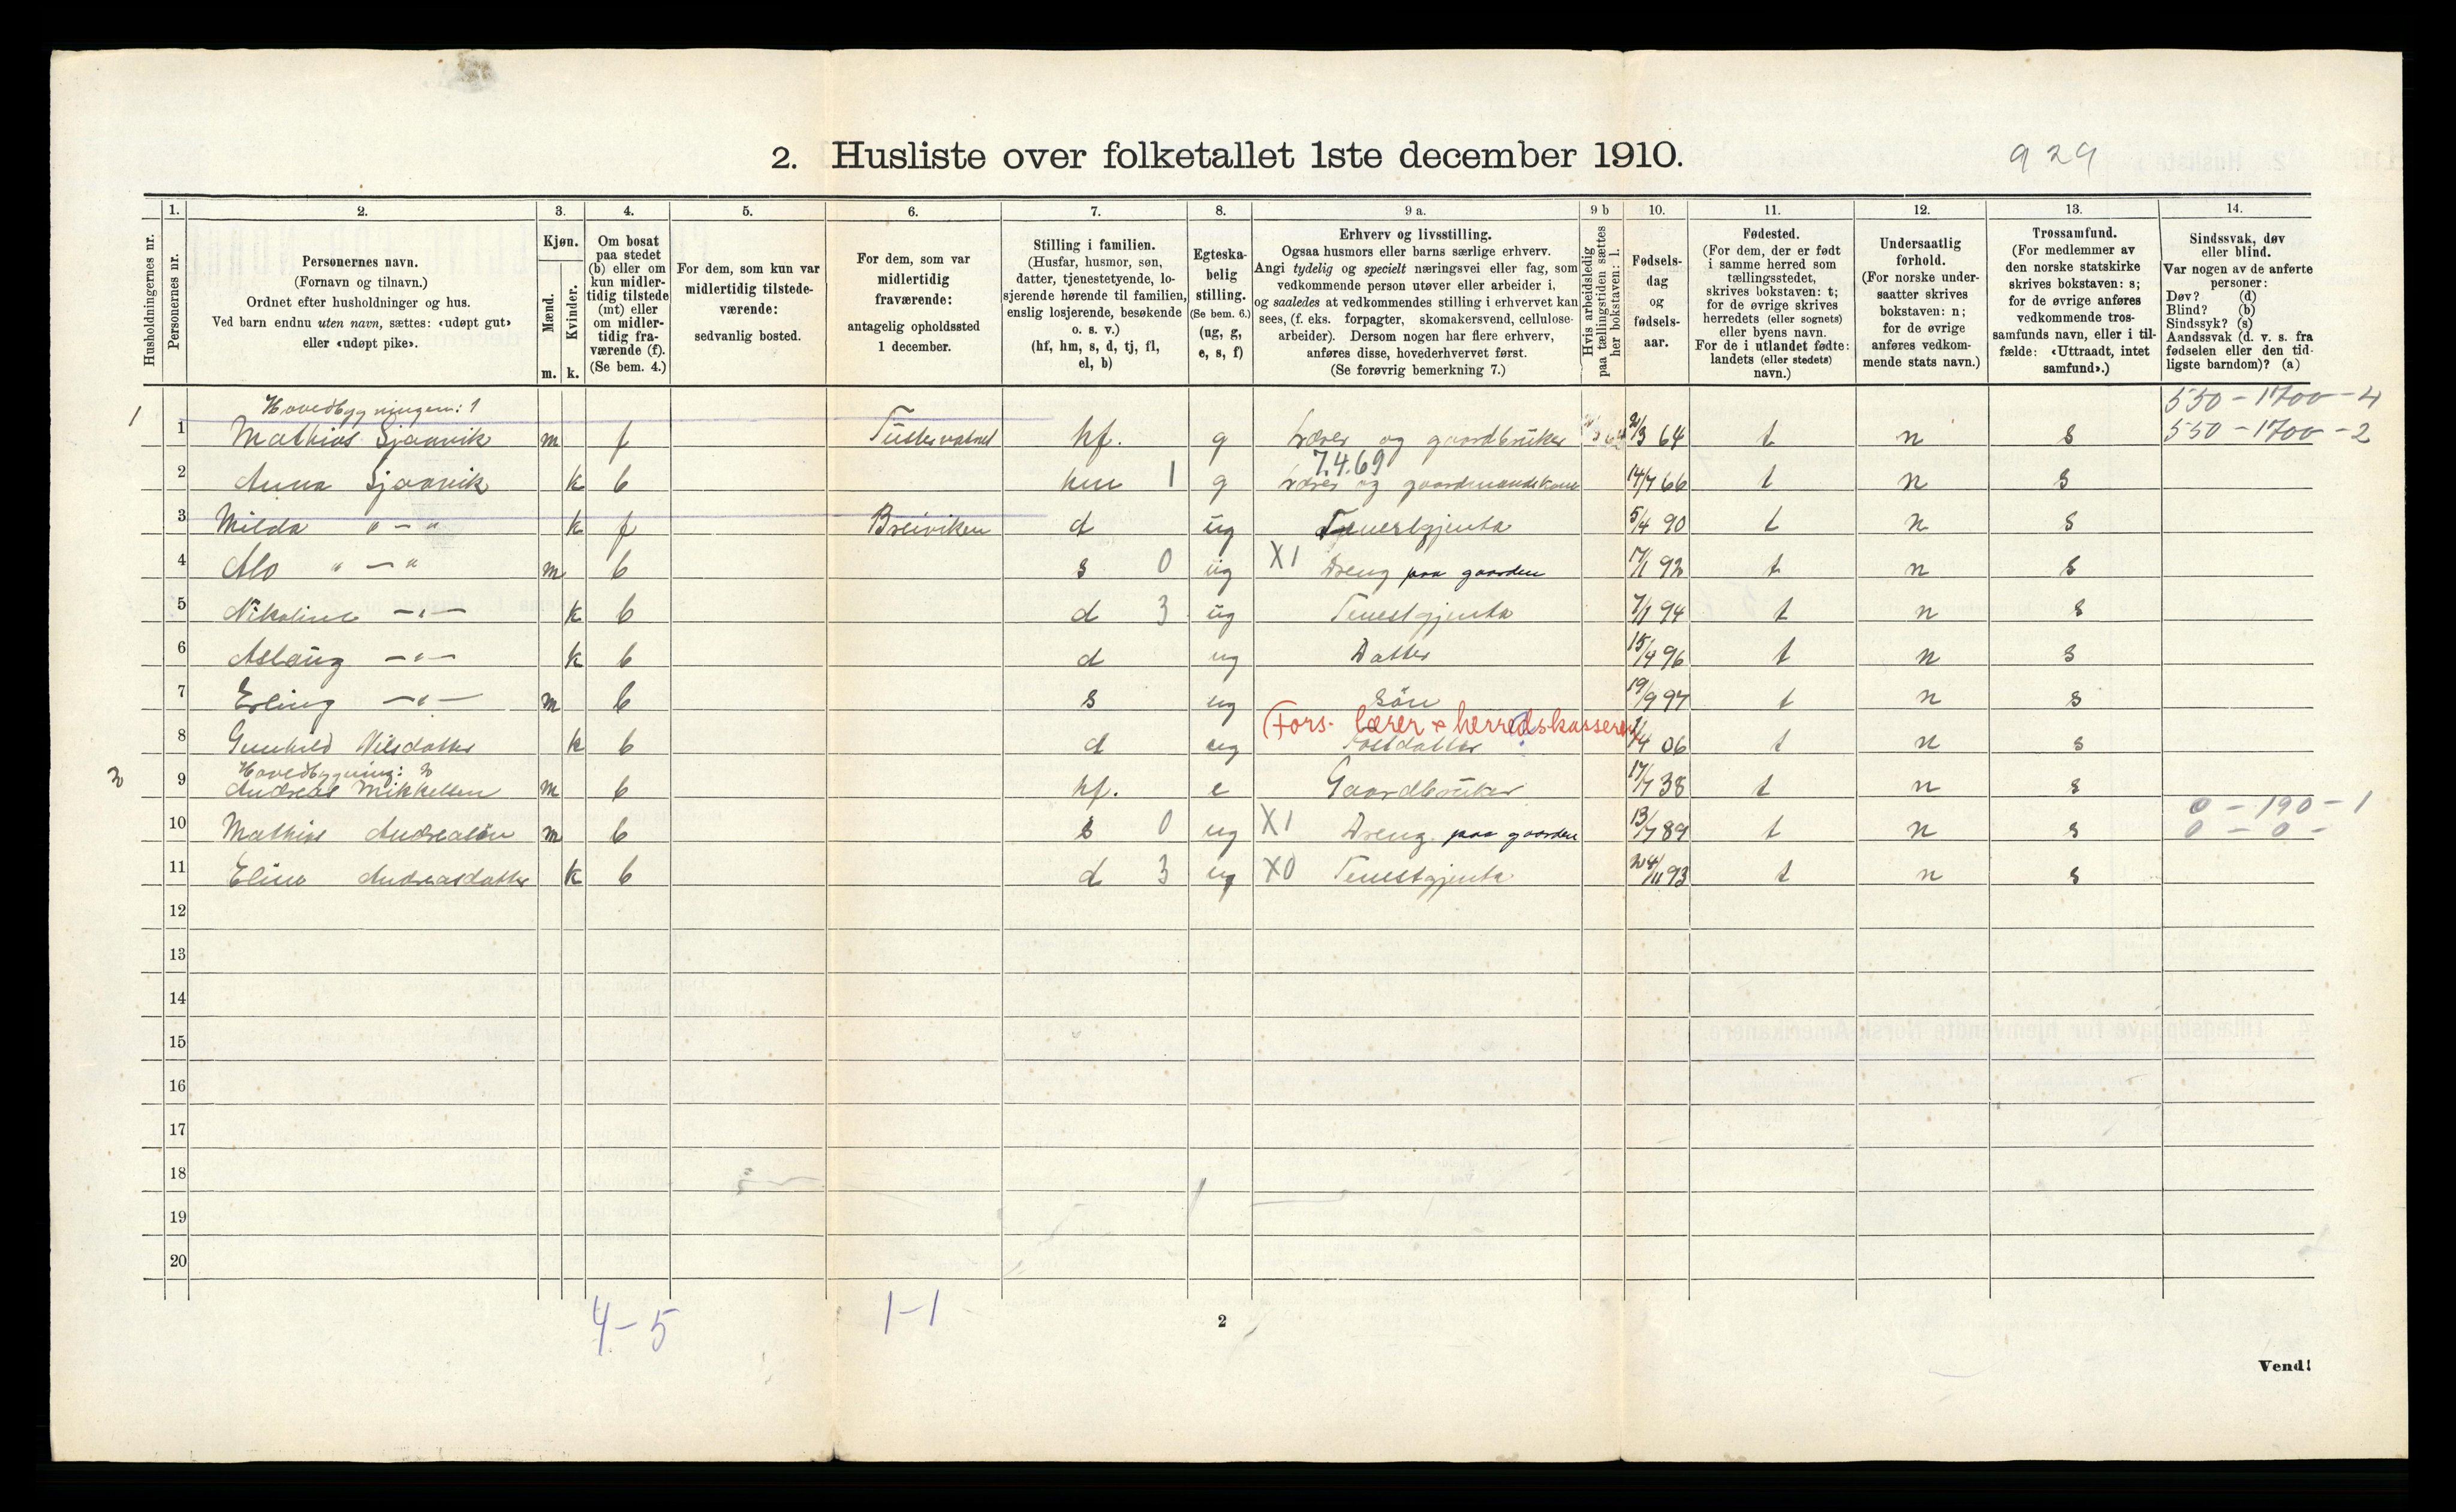 2. Husliste over folketallet 1ste december 1910.
929
Husholdningernes nr.
1.
Personernes nr.
2.
Personernes navn.
(Fornavn og tilnavn.)
Ordnet efter husholdninger og hus.
Ved barn endnu uten navn, sættes: «udøpt gut»
eller «udøpt pike».
3.
Kjøn.
Mænd.
Kvinder.
m. k.
4.
Om bosat
paa stedet
(b) eller om
kun midler-
tidig tilstede
(mt) eller
om midler-
tidig fra-
værende (f).
(Se bem. 4.)
5.
For dem, som kun var
midlertidig tilstede-
værende:
sedvanlig bosted.
6.
For dem, som var
midlertidig
fraværende:
antagelig opholdssted
1 december.
7.
Stilling i familien.
(Husfar, husmor, søn,
datter, tjenestetyende, lo-
sjerende hørende til familien,
enslig losjerende, besøkende
o. s. v.)
(hf, hm, s, d, tj, fl,
el, b)
8.
Egteska-
belig
stilling.
(Se bem. 6.)
(ug, g,
e, s, f)
9 a.
Erhverv og livsstilling.
Ogsaa husmors eller barns særlige erhverv.
Angi tydelig og specielt næringsvei eller fag, som
vedkommende person utøver eller arbeider i,
og saaledes at vedkommendes stilling i erhvervet kan
sees, (f. eks. forpagter, skomakersvend, cellulose-
arbeider). Dersom nogen har flere erhverv,
anføres disse, hovederhvervet først.
(Se forøvrig bemerkning 7.)
9 b
Hvis arbeidsledig
paa tællingstiden sættes
her bokstaven: l.
10.
Fødsels-
dag
og
fødsels-
aar.
11.
Fødested.
(For dem, der er født
i samme herred som
tællingsstedet,
skrives bokstaven: t;
for de øvrige skrives
herredets (eller sognets)
eller byens navn.
For de i utlandet fødte:
landets (eller stedets)
navn.)
12.
Undersaatlig
forhold.
(For norske under-
saatter skrives
bokstaven: n;
for de øvrige
anføres vedkom-
mende stats navn.)
13.
Trossamfund.
(For medlemmer av
den norske statskirke
skrives bokstaven: s;
for de øvrige anføres
vedkommende tros-
samfunds navn, eller i til-
fælde: «Uttraadt, intet
samfund».)
14.
Sindssvak, døv
eller blind.
Var nogen av de anførte
personer:
Døv? (d)
Blind? (b)
Sindssyk? (s)
Aandssvak (d. v. s. fra
fødselen eller den tid-
ligste barndom)? (a)
Hovedbygningen: 1
550 - 1700 - 4
1 1 Mathias Sjaavik m f Tustervatnet hf. g Lærer og gaardbruker 64 t n s 550 - 1700 - 2
7.4.69
2 Anna Sjaavik k b hm 1 g Lærer og gaardmandskone 66 t n s
3 Milda " - " k f Breiviken d ug Tenestgjenta 5/4 90 t n s
4 " - " m b s 0 ug X1 Dreng paa gaarden 17/1 92 t n s
5 Nikoline - " - k b d 3 ug Tenestgjenta 7/1 94 t n s
6 Aslaug - " - k b d ug Datter 15/4 96 t n s
7 Erling - " - m b s ug Søn 19/9 97 t n s
(Fors. lærer + herredskasserer)
8 Gunhild Nilsdatter k b d ug Fostdatter 1/4 06 t n s
Hovedbygning: 2
2 9 Andreas Mikkelsen m b hf. e Gaardbruker 17/7 38 t n s
0 - 190 - 1
10 Mathias Andreasøn m b s 0 ug X1 Dreng paa gaarden 13/7 89 t n s 0 - 0 -
11 Elina Andreasdatter k b d 3 ug X0 Tenestgjenta 24/11 93 t n s
12
13
14
15
16
17
18
19
20
4 - 5
1 - 1
2
Vend!